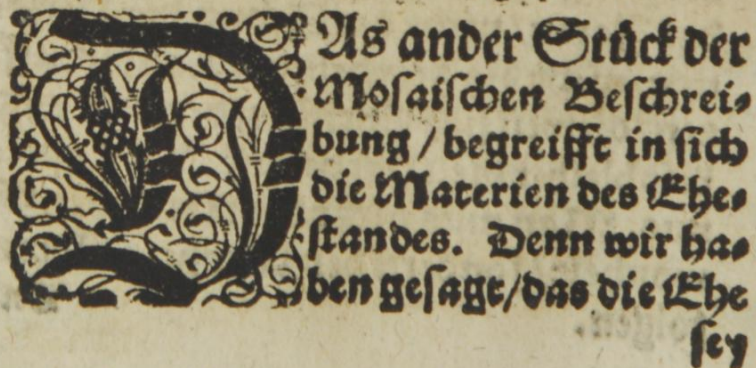 DAs ander Stück der
Mosaischen Beschrei⸗
bung / begreifft in sich
die Materien des Ehe⸗
standes. Denn wir ha⸗
ben gesagt / das die Ehe
sey